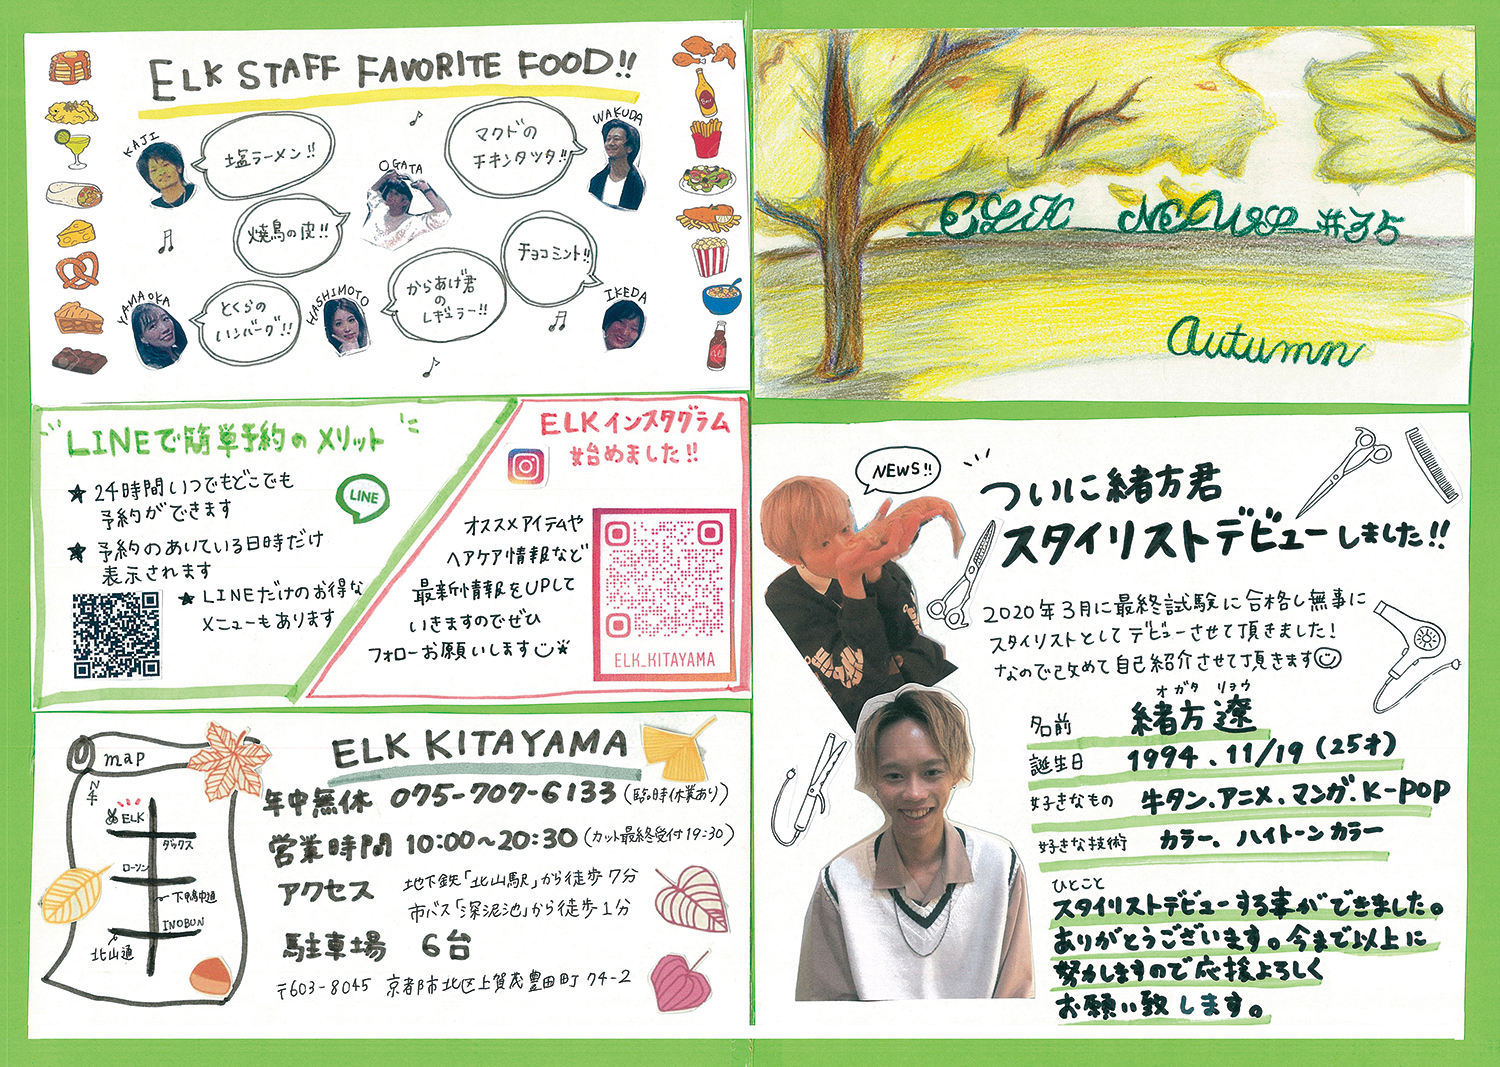 ELK STAFF FAVORITE FOOD!!
KAJI
塩ラーメン!!
WAKUDA
マクドの
チキンタツタ!!
OGATA
焼鳥の皮!!
チョコミント!!
IKEDA
YAMAOKA
とくらの
ハンバーグ!!
HASHIMOTO
からあげ君
の
レギュラー!!
LINEで簡単予約のメリット
★ 24時間いつでもどこでも
予約ができます
★ 予約のあいている日時だけ
表示されます
★ LINEだけのお得な
メニューもあります
LINE
ELKインスタグラム
始めました!!
オススメアイテムや
ヘアケア情報など
最新情報をUPして
いきますのでぜひ
フォローお願いします
ELK_KITAYAMA
map
N
ELK
ダックス
ローソン
下鴨中通
INOBUN
北山通
ELK KITAYAMA
年中無休 075-707-6133(臨時休業あり)
営業時間 10:00〜20:30(カット最終受付19:30)
アクセス 地下鉄「北山駅」から徒歩7分
市バス「深泥池」から徒歩1分
駐車場 6台
〒603-8045 京都市北区上賀茂豊田町74-2
ELK NEWS #35
autumn
NEWS!!
ついに緒方君
スタイリストデビューしました!!
2020年3月に最終試験に合格し無事に
スタイリストとしてデビューさせて頂きました!
なので改めて自己紹介させて頂きます
オガタ リョウ
名前 緒方 遼
誕生日 1994.11/19(25才)
好きなもの 牛タン、アニメ、マンガ、K-POP
好きな技術 カラー、ハイトーンカラー
ひとこと
スタイリストデビューする事ができました。
ありがとうございます。今まで以上に
努力しますので応援よろしく
お願い致します。